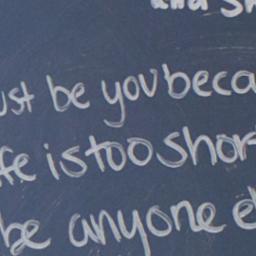 and sh
ust be you beca
fe is too shor
be anyone e